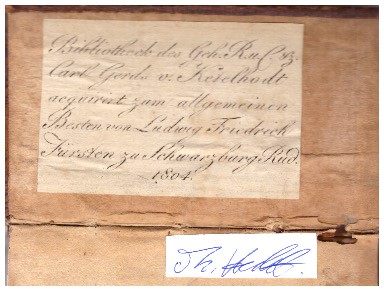 Bibliotheck des Geh. R. u. C. 
Carl Gerds v. Ketelhodt
acquirirt zum allgemeinen
Besten von Ludwig Friedrich
Fürsten zu Schwarzburg Rud.
1804.
Th.